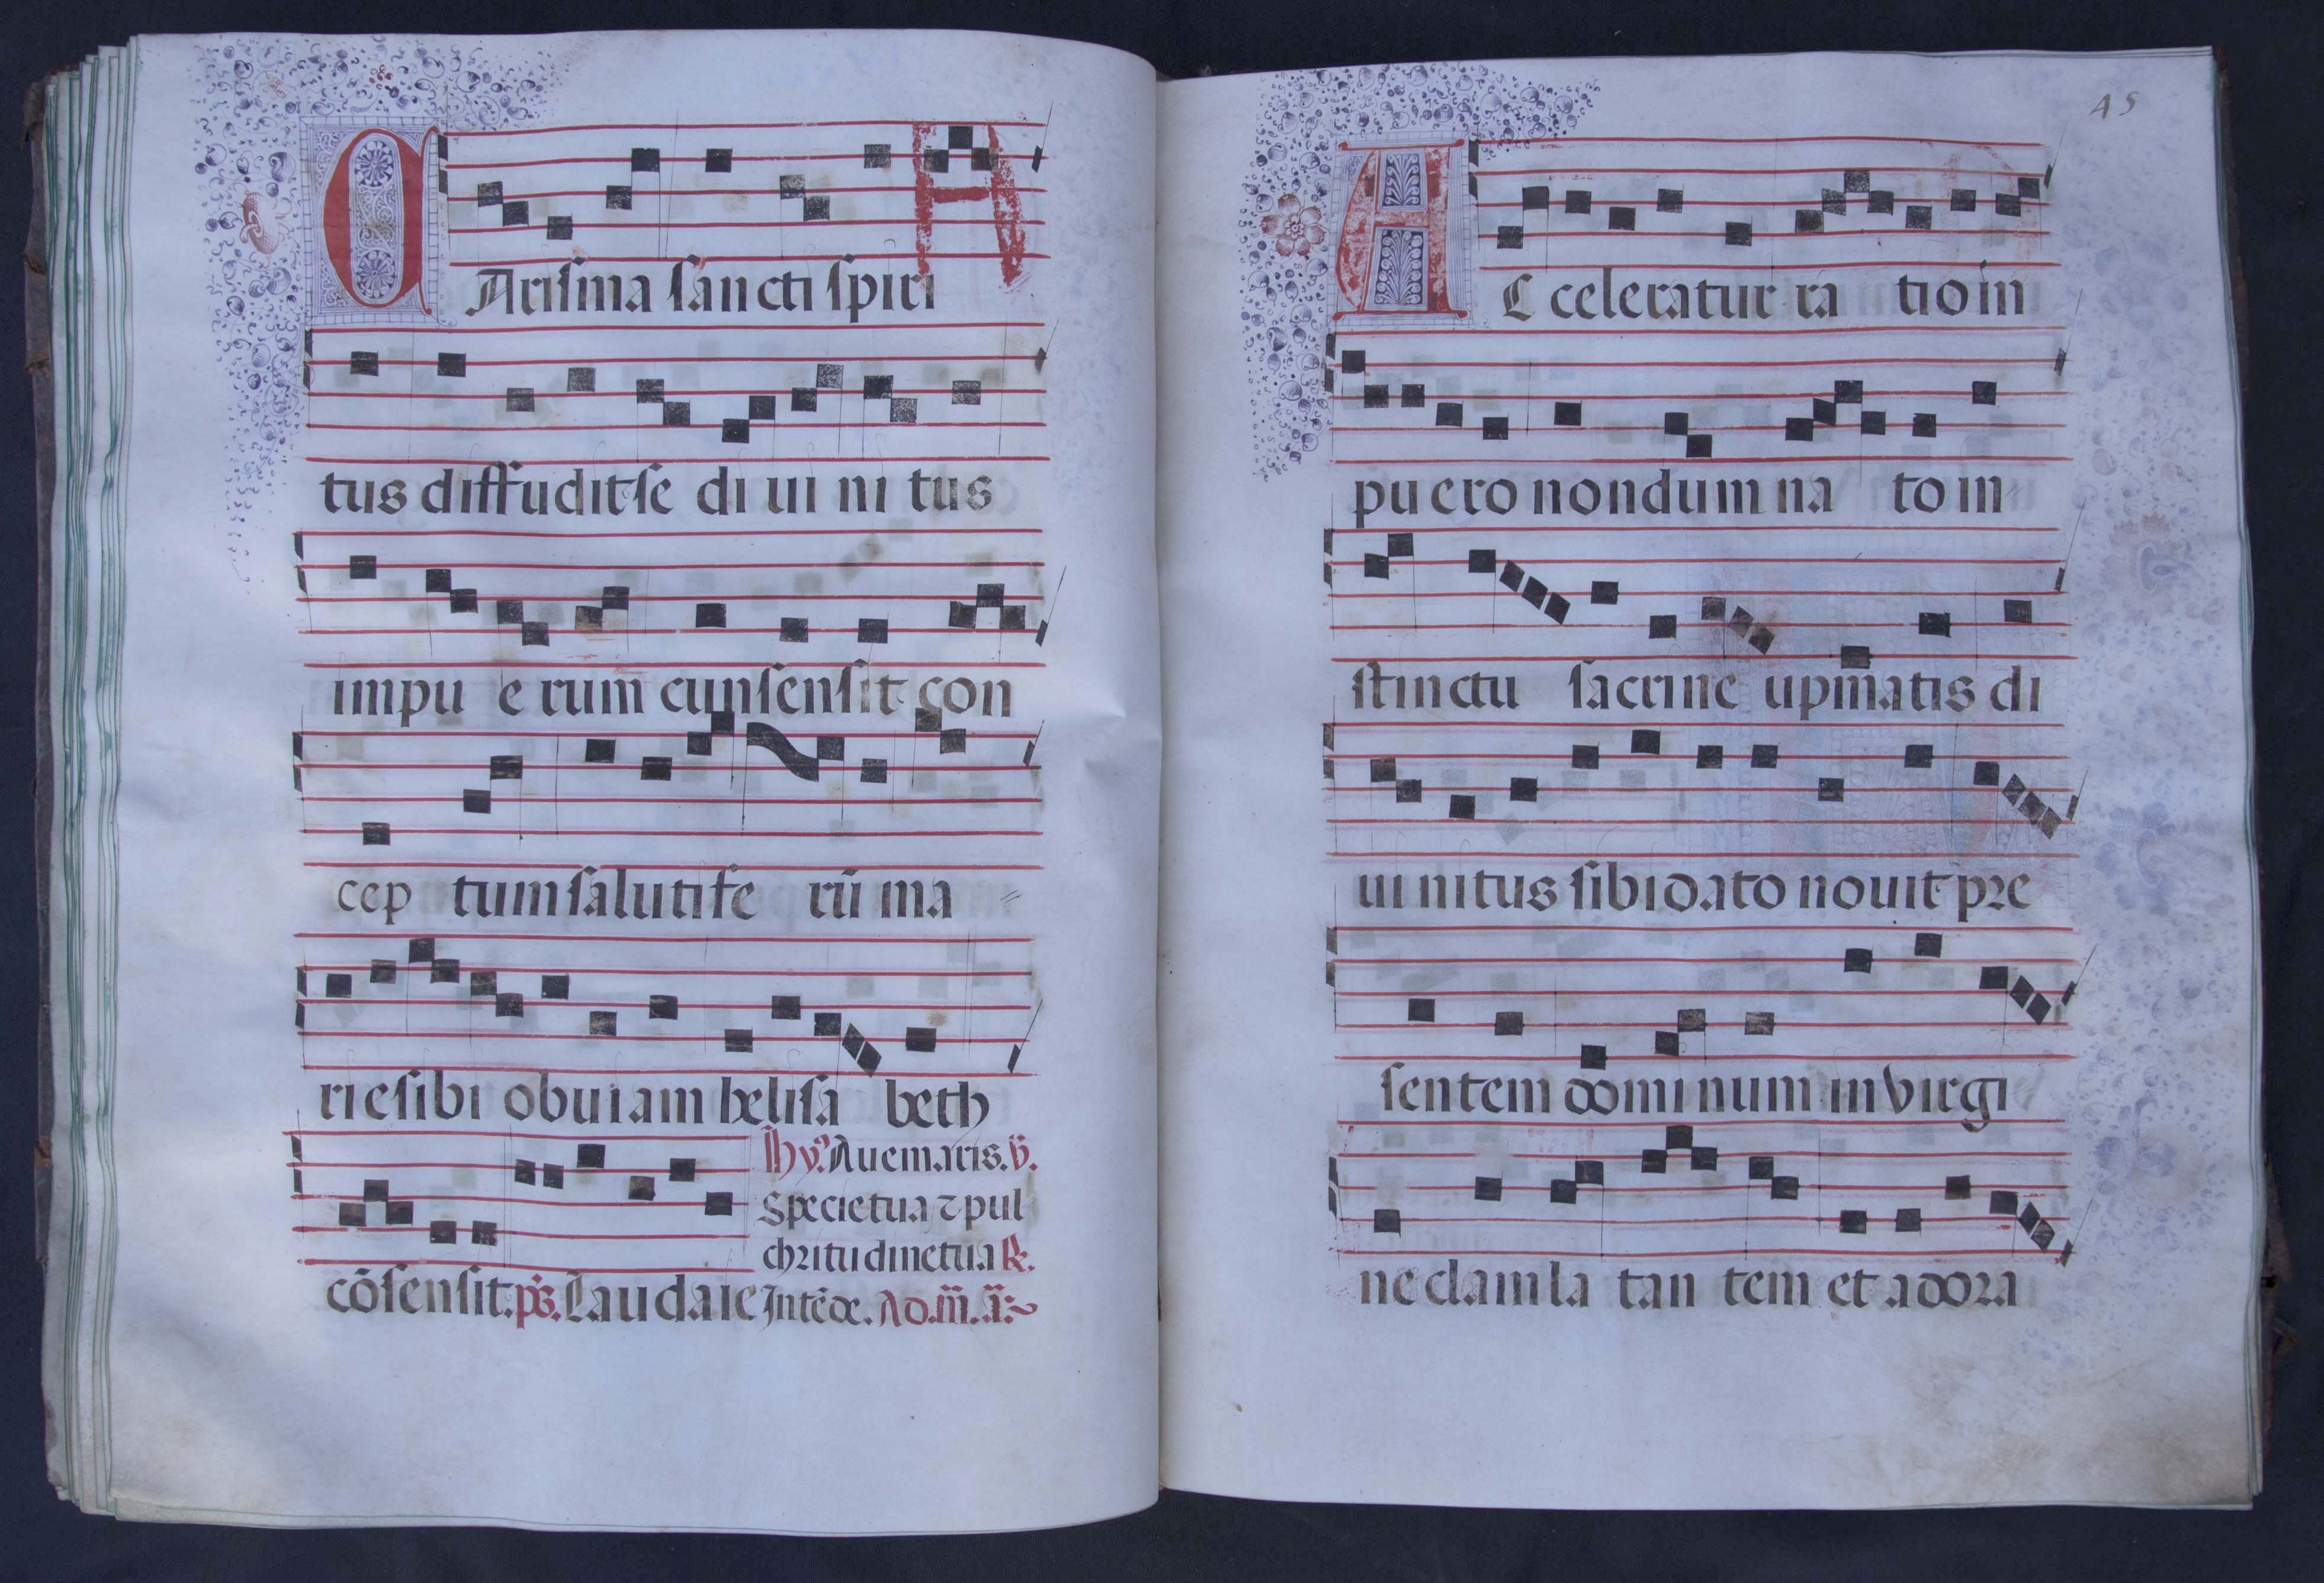 CArisma sancti spiri
tus diffudit se di ui ni tus
impu e rum cunsensit con
cep tum salutife rū ma
ri e sibi obuiam helisa beth
cōsensit. ps. Laudate
Ihy9. Aue maris. v̄.
Specie tua ⁊ pul
chritudine tua R.
Intēde. Ad. m̄. ā.
45
AC celeratur ra tio in
pu ero nondum na to in
stinctu sacri ne upmatis di
ui nitus sibi dato nouit pre
sentem dominum in virgi
ne clam la tan tem et adora